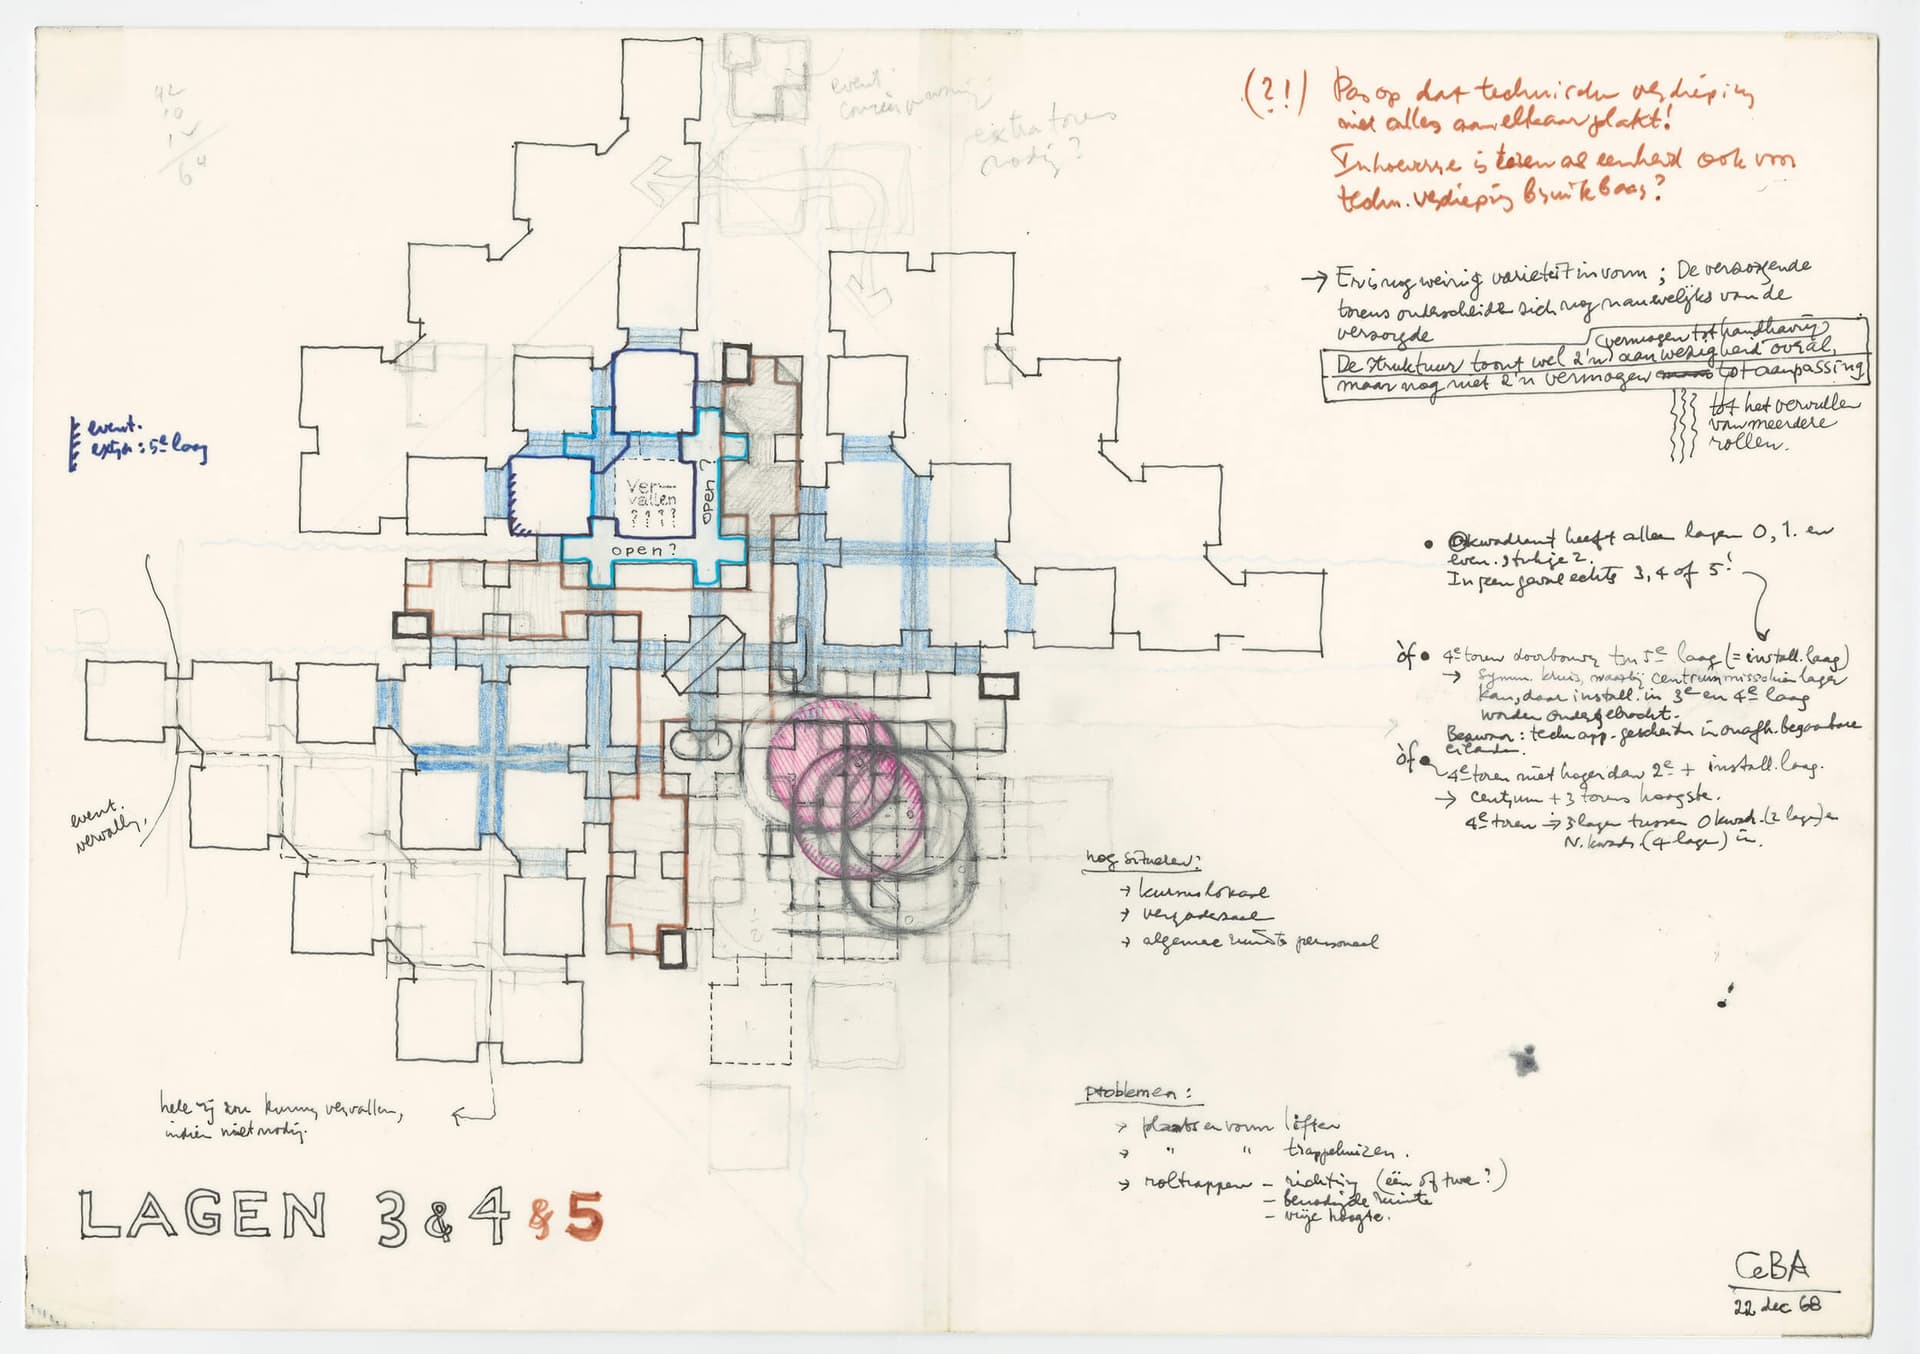 42
10
64
event.
extra toren
nodig?
(?!) Pas op dat technische verdieping
niet alles aan elkaar plakt!
In hoeverre is toren als eenheid ook voor
techn. verdieping bruikbaar?
→ Er is nog weinig varieteit in vorm ; De verzorgende
torens onderscheiden zich nog nauwelijks van de
verzorgde
(vermogen tot handhaving
De struktuur toont wel z'n aanwezigheid overal,
maar nog niet z'n vermogen tot aanpassing
tot het vervullen
van meerdere
rollen.
event.
extra: 5e laag
Ver-
vallen
????
open?
open?
• O kwadrant heeft alleen lagen 0, 1. en
even. stukje 2.
In geen geval echte 3, 4 of 5!
òf • 4e toren doorbouwen tm 5e laag (= install. laag)
→ Symm. kruis, waarbij centrum misschien lager
kan, daar install. in 3e en 4e laag
worden ondergebracht.
Bezwaar: techn. app. gescheiden in onafh. begaanbare
eilanden.
òf • 4e toren niet hoger dan 2e + install. laag.
→ centrum + 3 torens hoogste.
4e toren → 3 lagen tussen O kwadr. (2 lagen) en
N. kwadr. (4 lagen) in.
event.
vervallen
nog situeren:
→ kursuslokaal
→ vergaderzaal
→ algemene ruimte personeel
hele rij zou kunnen vervallen,
indien niet nodig.
problemen:
→ plaats en vorm liften
→ " " trappehuizen.
→ roltrappen – richting (één of twee?)
– benodigde ruimte
– vrije hoogte.
LAGEN 3 & 4 & 5
CeBA
22 dec 68